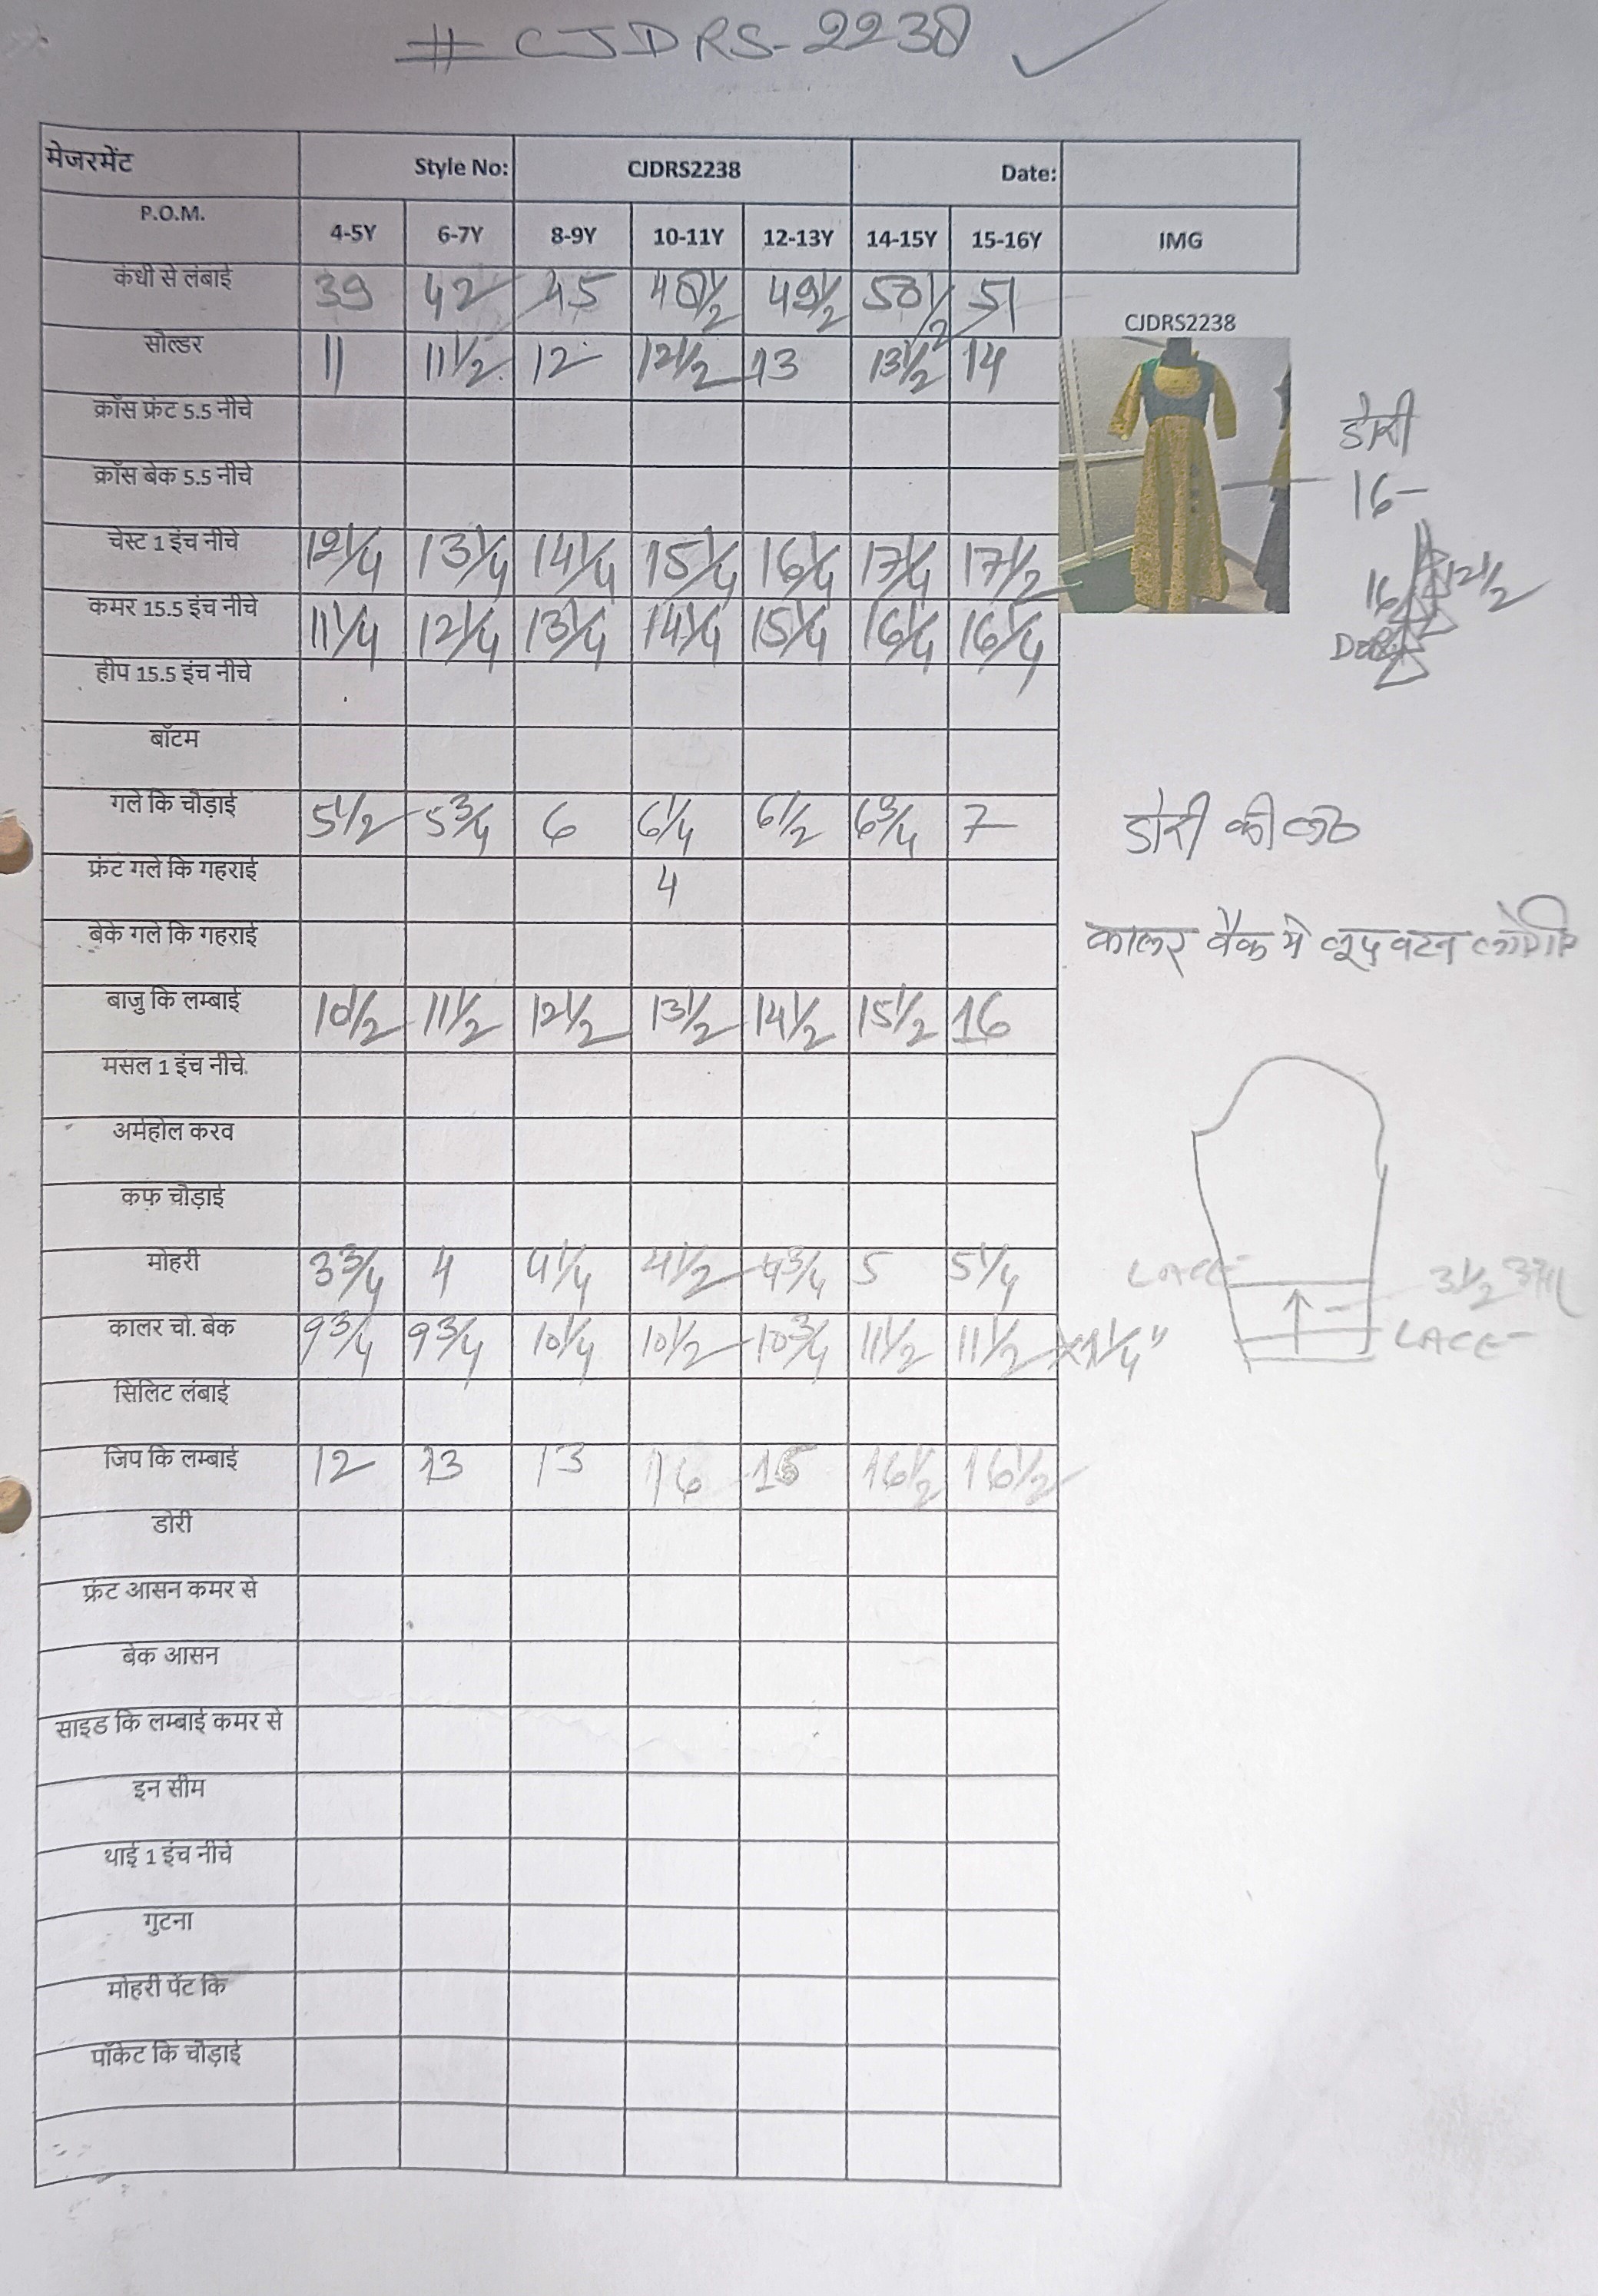 # CJDRS-2238 ✓
मेजरमेंट Style No: CJDRS2238 Date:
P.O.M. 4-5Y 6-7Y 8-9Y 10-11Y 12-13Y 14-15Y 15-16Y IMG
कंधी से लंबाई 39 42 45 48 1/2 49 1/2 50 1/2 51
CJDRS2238
सोल्डर 11 11 1/2 12 12 1/2 13 13 1/2 14
क्रॉस फ्रंट 5.5 नीचे
डोरी
क्रॉस बेक 5.5 नीचे
16-
चेस्ट 1 इंच नीचे 12 1/4 13 1/4 14 1/4 15 1/4 16 1/4 17 1/4 17 1/2
कमर 15.5 इंच नीचे 11 1/4 12 1/4 13 1/4 14 1/4 15 1/4 16 1/4 16 1/4
हीप 15.5 इंच नीचे
बॉटम
गले कि चौड़ाई 5 1/2 5 3/4 6 6 1/4 6 1/2 6 3/4 7
डोरी की
फ्रंट गले कि गहराई 4
बेके गले कि गहराई
कालर बैक मे
बाजु कि लम्बाई 10 1/2 11 1/2 12 1/2 13 1/2 14 1/2 15 1/2 16
मसल 1 इंच नीचे
अर्महोल करव
कफ चौड़ाई
मोहरी 3 3/4 4 4 1/4 4 1/2 4 3/4 5 5 1/4
LACE 3 1/2
कालर चो. बेक 9 3/4 9 3/4 10 1/4 10 1/2 10 3/4 11 1/2 11 1/2 x 1 1/4"
LACE
सिलिट लंबाई
जिप कि लम्बाई 12 13 13 16 16 1/2 16 1/2
डोरी
फ्रंट आसन कमर से
बेक आसन
साइड कि लम्बाई कमर से
इन सीम
थाई 1 इंच नीचे
गुटना
मोहरी पेंट कि
पॉकेट कि चौड़ाई